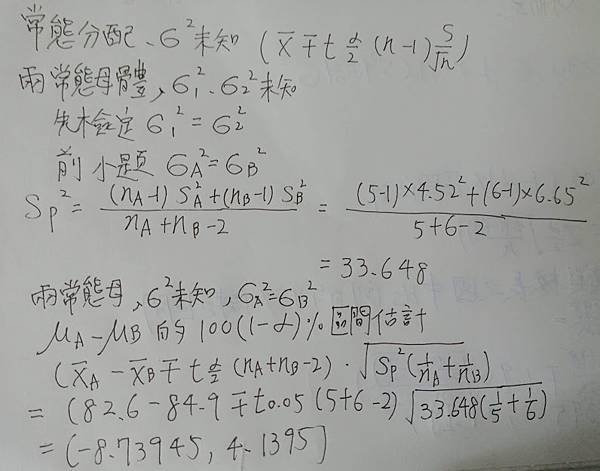 常態分配、σ²未知 (X̄ ∓ t α/2 (n-1) S/√n)
兩常態母體,σ₁²、σ₂²未知
先檢定 σ₁² = σ₂²
前小題 σA² = σB²
Sp² = (nA-1) SA² + (nB-1) SB² / nA + nB - 2 = (5-1)×4.52² + (6-1)×6.65² / 5+6-2
= 33.648
兩常態母,σ²未知,σA²=σB²
μA-μB 的 100(1-α)% 區間估計
(X̄A - X̄B ∓ t α/2 (nA+nB-2) · √Sp²(1/nA + 1/nB)
= (82.6 - 84.9 ∓ t0.05 (5+6-2) √33.648(1/5 + 1/6)
= (-8.73945, 4.1395)